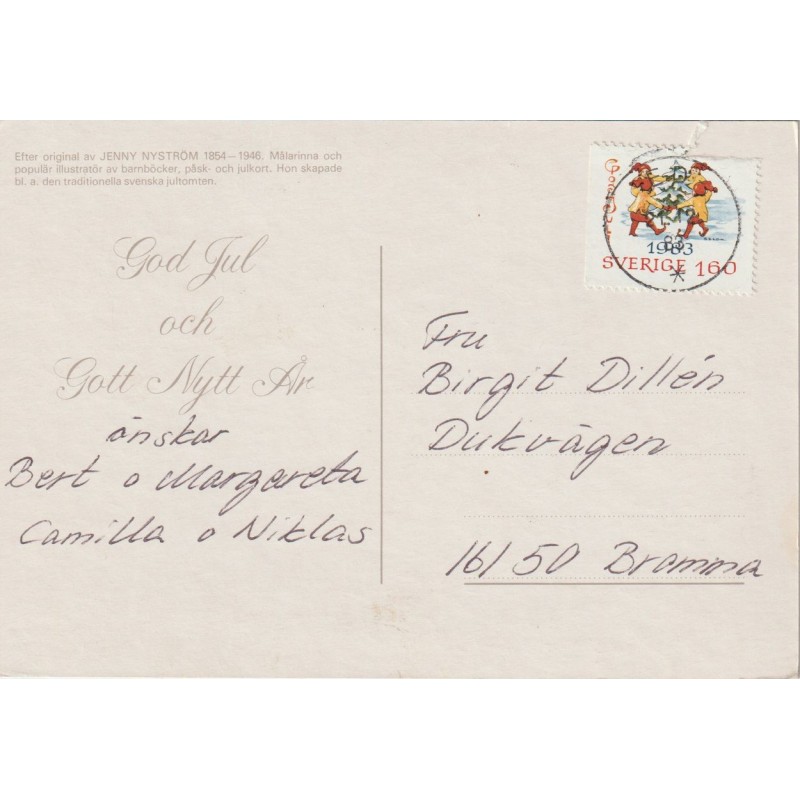 Efter original av JENNY NYSTRÖM 1854–1946. Målarinna och
populär illustratör av barnböcker, påsk- och julkort. Hon skapade
bl. a. den traditionella svenska jultomten.
God Jul
och
Gott Nytt År
önskar
Bert o Margareta
Camilla o Niklas
God Jul
1983
SVERIGE 160
Fru
Birgit Dillén
Dukvägen
161 50 Bromma